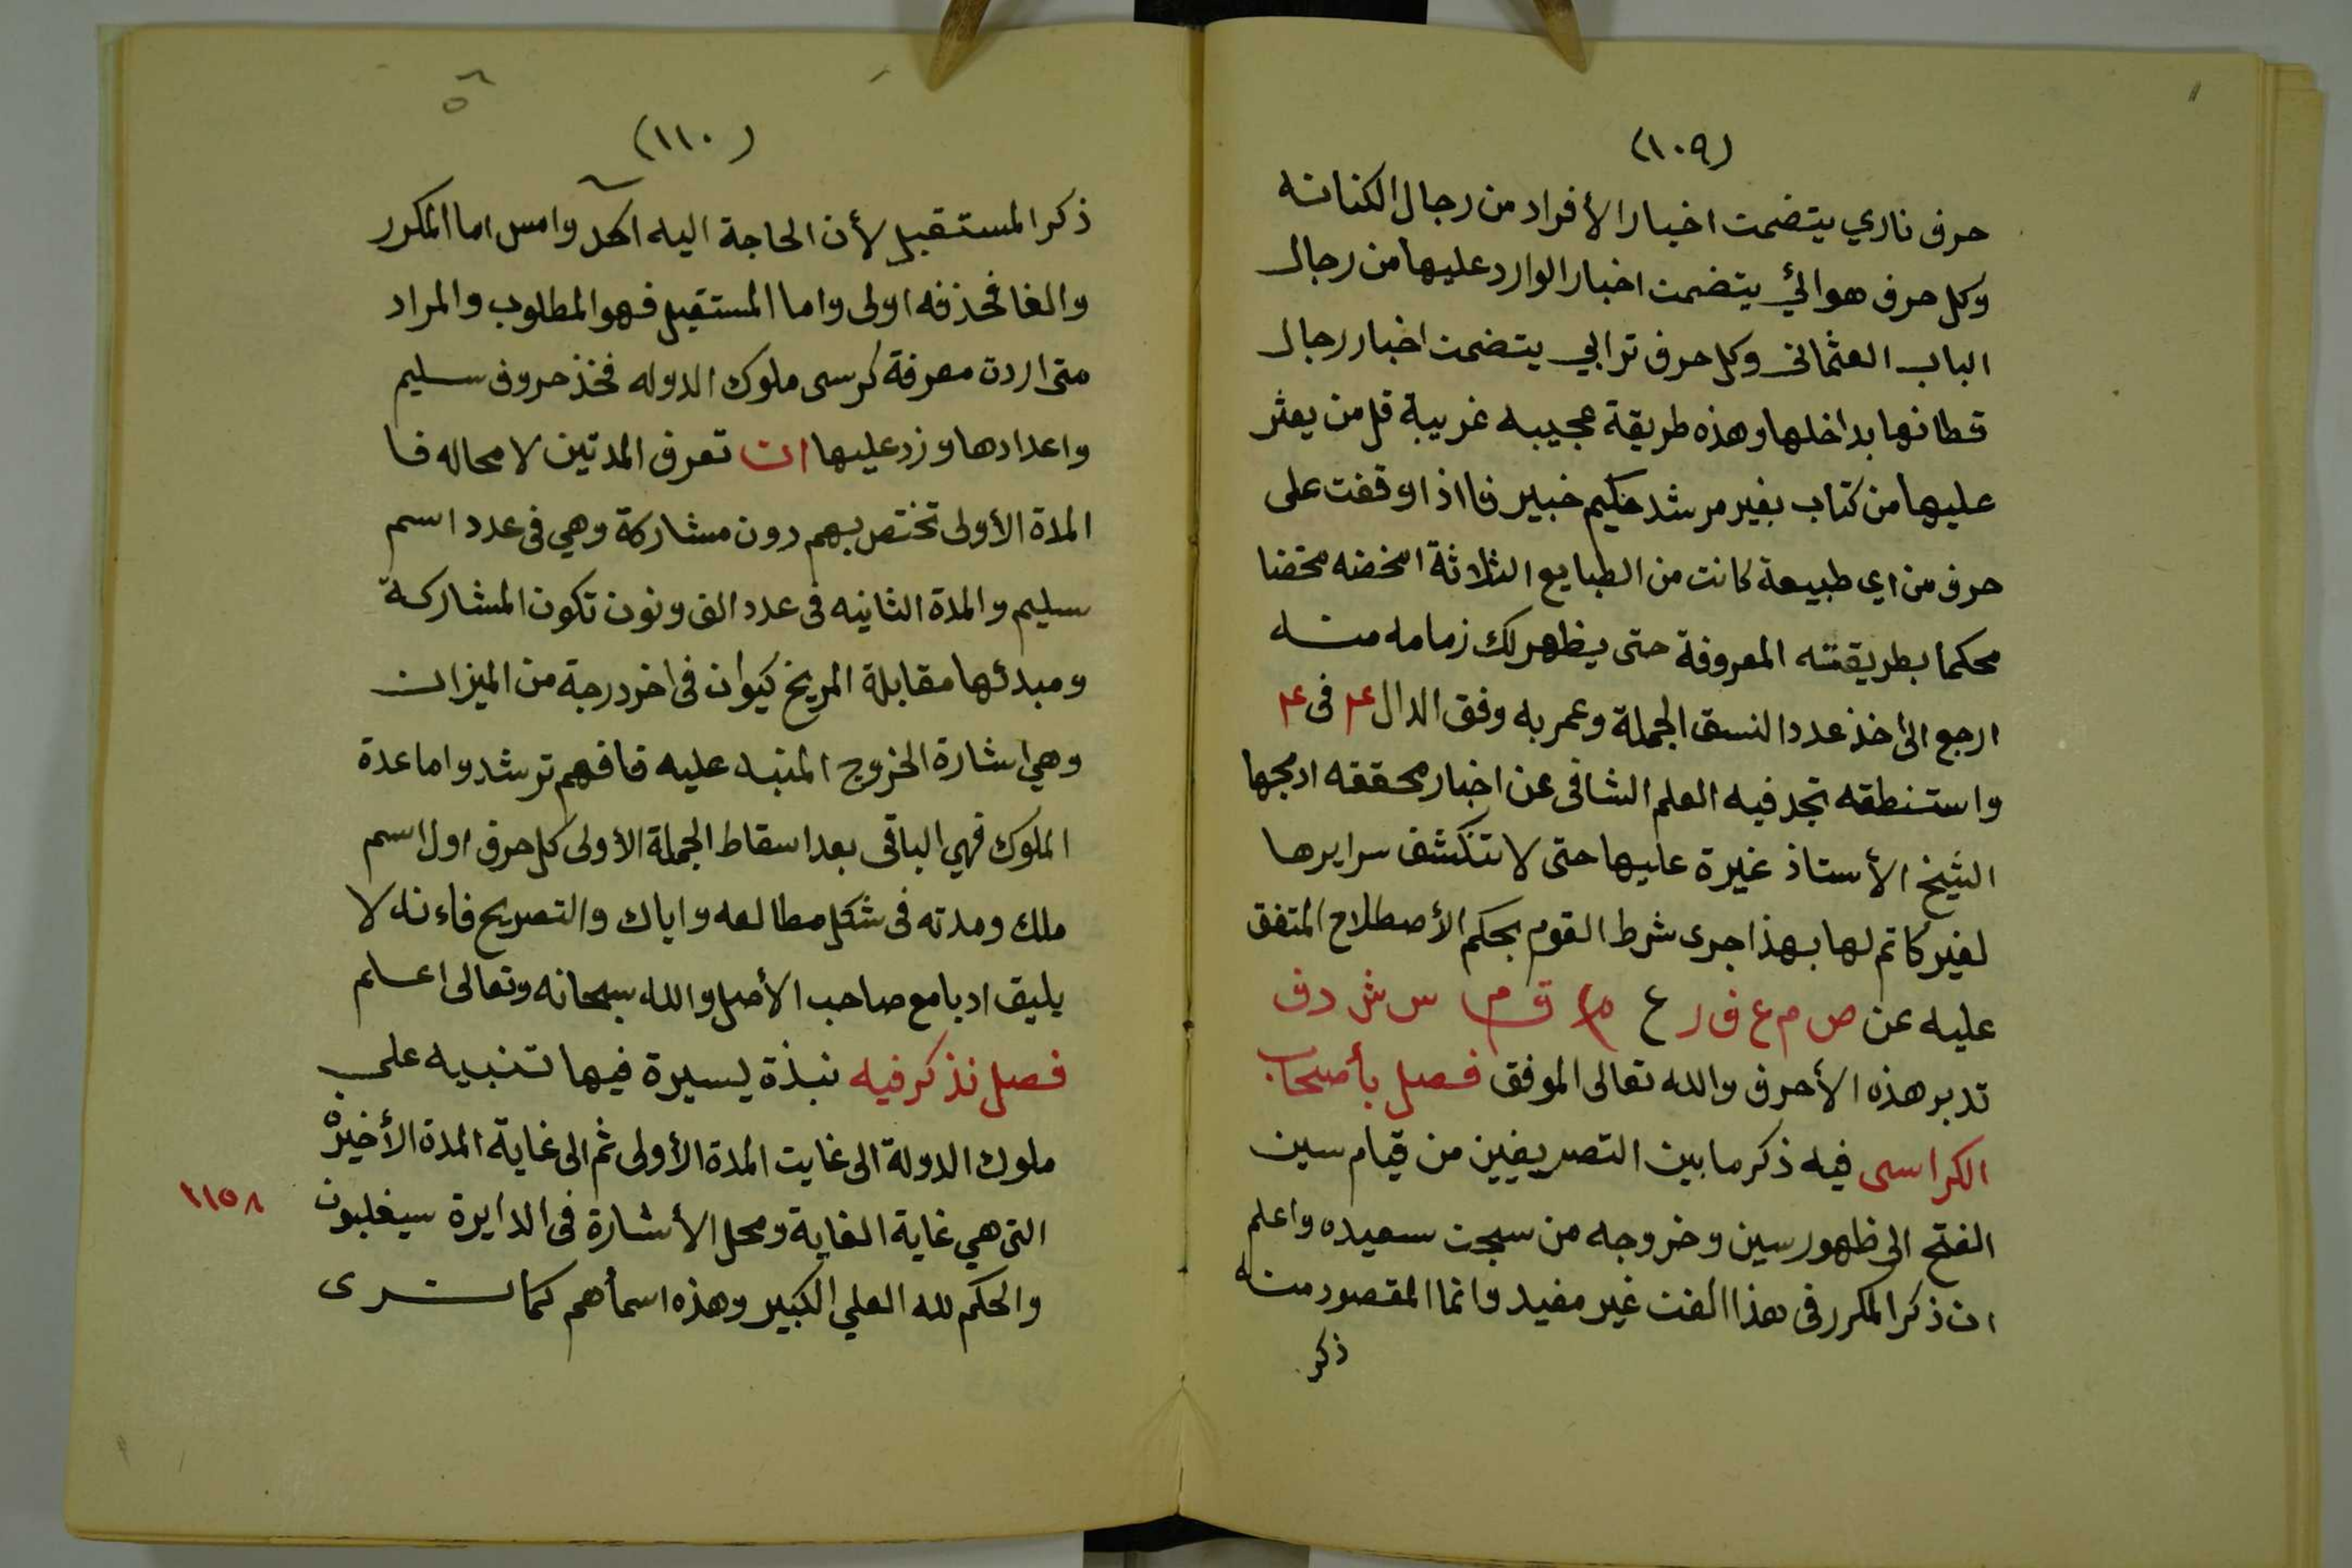 (١٠٩)
حرف ناري يتضمن اخبار الأفراد من رجال الكنانه
وكل حرف هوائي يتضمن اخبار الوارد عليها من رجال
الباب العثماني وكل حرف ترابي يتضمن اخبار رجال
قطانها بداخلها وهذه طريقة عجيبه غريبة قل من يعثر
عليها من كتاب بغير مرشد حكيم خبير فااذا وقفت على
حرف من اي طبيعة كانت من الطبايع الثلاثة امخضه مخضا
محكما بطريقته المعروفة حتى يظهر لك زمامه منه
ارجع الى اخذ عدد النسق الجملة وعمر به وفق الدال ٤ فى ٤
واستنطقه تجد فيه العلم الشافى عن اخبار محققه ادمجها
الشيخ الأستاذ غيرة عليها حتى لا تنكشف سرايرها
لغير كاتم لها بهذا جرى شرط القوم بحكم الأصطلاح المتفق
عليه عن ص م ع ف ر ع م ق م س ش د ف
تدبر هذه الأحرف والله تعالى الموفق فصل بأصحاب
الكراسى فيه ذكر ما بين التصريفين من قيام سين
الفتح الى ظهور سين وخروجه من سجن سعيده واعلم
ان ذكر المكرر فى هذا الفن غير مفيد وانما المقصود منه
ذكر
(١١٠)
ذكر المستقبل لأن الحاجة اليه اكد وامس اما المكرر
والغا فحذفه اولى واما المستقبل فهو المطلوب والمراد
متى اردت معرفة كرسى ملوك الدوله فخذ حروف سليم
واعدادها وزد عليها ان تعرف المدتين لا محاله فا
المدة الأولى تختص بهم دون مشاركة وهي فى عدد اسم
سليم والمدة الثانيه فى عدد الف ونون تكون المشاركة
ومبدئها مقابلة المريخ كيوان فى اخر درجة من الميزان
وهي اشارة الخروج المنبه عليه فافهم ترشد واما عدة
الملوك فهي الباقى بعد اسقاط الجملة الأولى كل حرف اول اسم
ملك ومدته فى شكل مطالعه واياك والتصريح فاءنه لا
يليق ادبا مع صاحب الأصل والله سبحانه وتعالى اعلم
فصل نذكر فيه نبذة يسيرة فيها تنبيه على
ملوك الدولة الى غايت المدة الأولى ثم الى غاية المدة الأخيرة
التى هي غاية الغاية ومحل الأشارة فى الدايرة سيغلبون ١١٥٨
والحكم لله العلي الكبير وهذه اسمأهم كما ترى